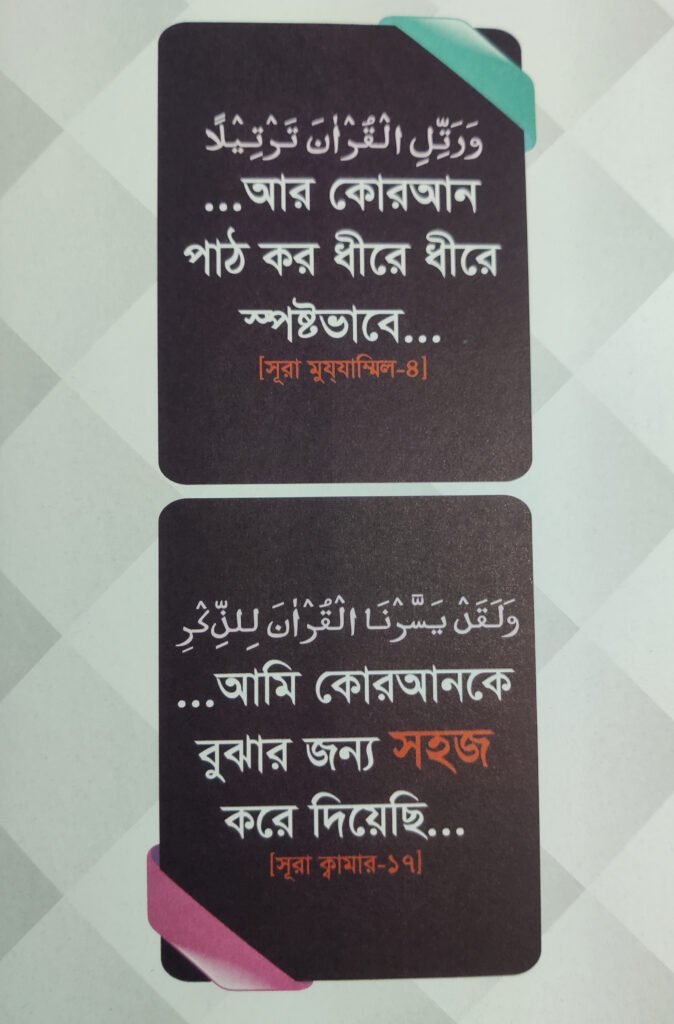 وَرَتِّلِ الْقُرْاٰنَ تَرْتِيْلًا
...আর কোরআন
পাঠ কর ধীরে ধীরে
স্পষ্টভাবে...
[সূরা মুয্যাম্মিল-৪]
وَلَقَدْ يَسَّرْنَا الْقُرْاٰنَ لِلذِّكْرِ
...আমি কোরআনকে
বুঝার জন্য সহজ
করে দিয়েছি...
[সূরা ক্বামার-১৭]